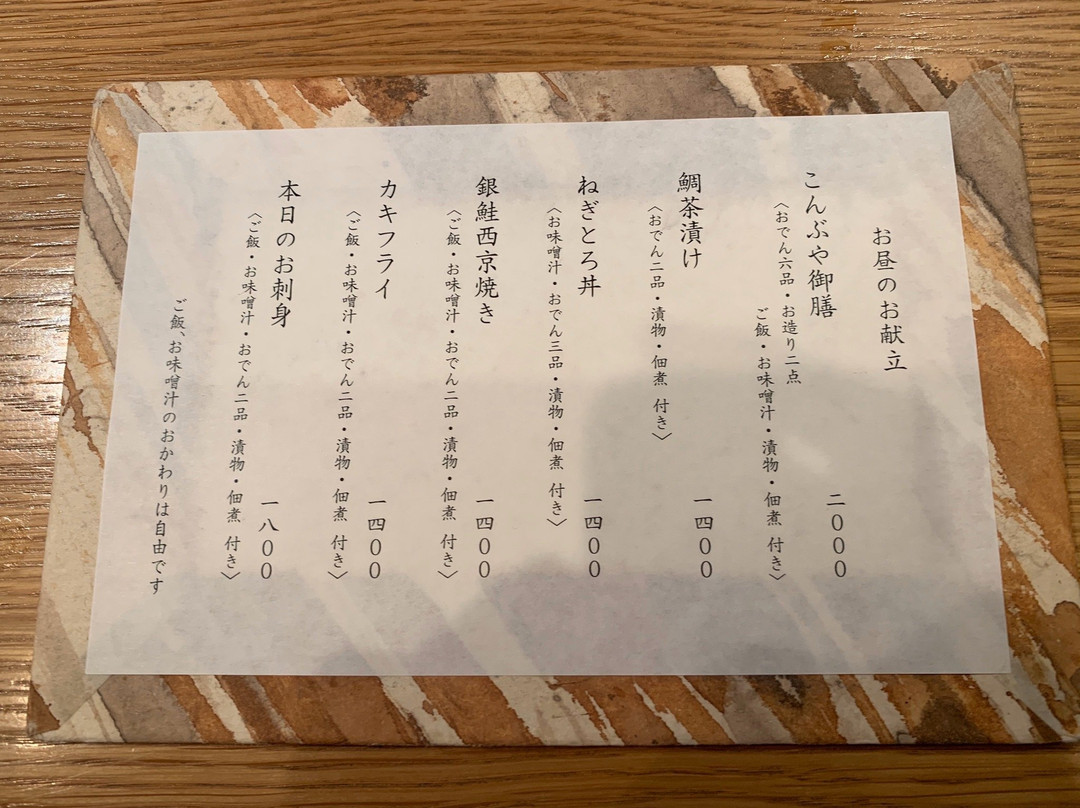 お昼のお献立
こんぶや御膳 二〇〇〇
〈おでん六品・お造り二点
ご飯・お味噌汁・漬物・佃煮 付き〉
鯛茶漬け 一四〇〇
〈おでん二品・漬物・佃煮 付き〉
ねぎとろ丼 一四〇〇
〈お味噌汁・おでん三品・漬物・佃煮 付き〉
銀鮭西京焼き 一四〇〇
〈ご飯・お味噌汁・おでん二品・漬物・佃煮 付き〉
カキフライ 一四〇〇
〈ご飯・お味噌汁・おでん二品・漬物・佃煮 付き〉
本日のお刺身 一八〇〇
〈ご飯・お味噌汁・おでん二品・漬物・佃煮 付き〉
ご飯、お味噌汁のおかわりは自由です